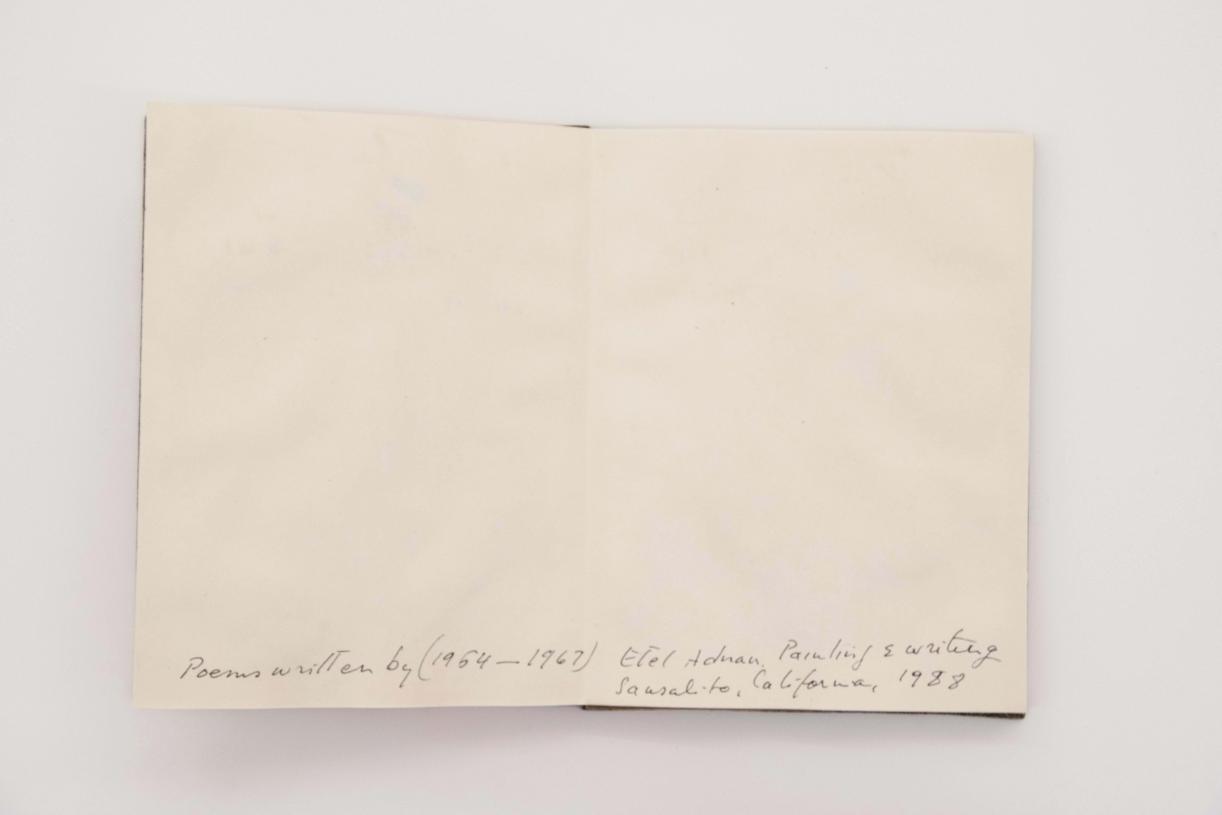 Poems written by (1964 — 1967)
Etel Adnan, Painting & writing
Sausalito, California, 1988